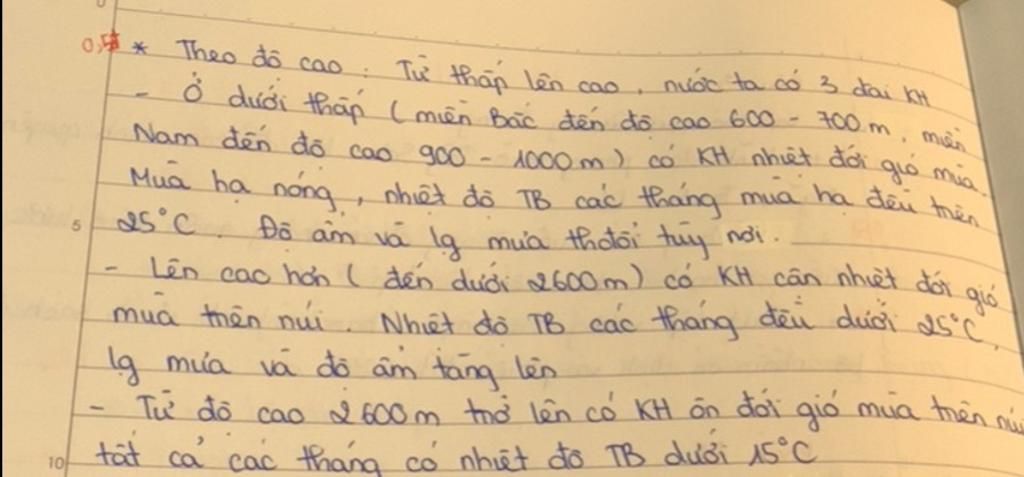 0,5 * Theo độ cao: Từ thấp lên cao, nước ta có 3 đai KH
- Ở dưới thấp (miền Bắc đến độ cao 600 - 700m, miền
Nam đến độ cao 900 - 1000m) có KH nhiệt đới gió mùa.
Mùa hạ nóng, nhiệt độ TB các tháng mùa hạ đều trên
5 25°C. Độ ẩm và lg mưa thđổi tùy nơi.
- Lên cao hơn (đến dưới 2600m) có KH cận nhiệt đới gió
mùa trên núi. Nhiệt độ TB các tháng đều dưới 25°C,
lg mưa và độ ẩm tăng lên
- Từ độ cao 2600m trở lên có KH ôn đới gió mùa trên núi
10 tất cả các tháng có nhiệt độ TB dưới 15°C